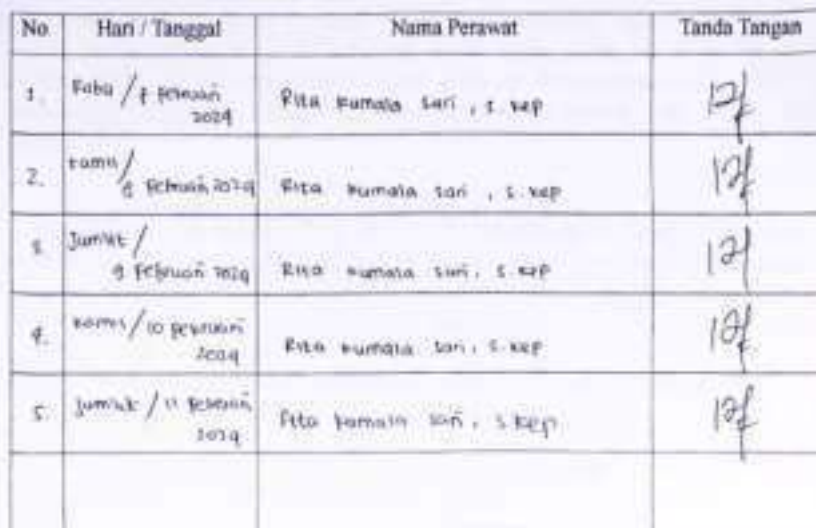 No Hari / Tanggal Nama Perawat Tanda Tangan
1. Rabu / 7 Februari
2024 Rita Kumala Sari, S.Kep
2. Kamis /
8 Februari 2024 Rita Kumala Sari, S.Kep
3. Jumat /
9 Februari 2024 Rita Kumala Sari, S.Kep
4. Kamis / 10 Februari
2024 Rita Kumala Sari, S.Kep
5. Jumat / 11 Februari
2024 Rita Kumala Sari, S.Kep